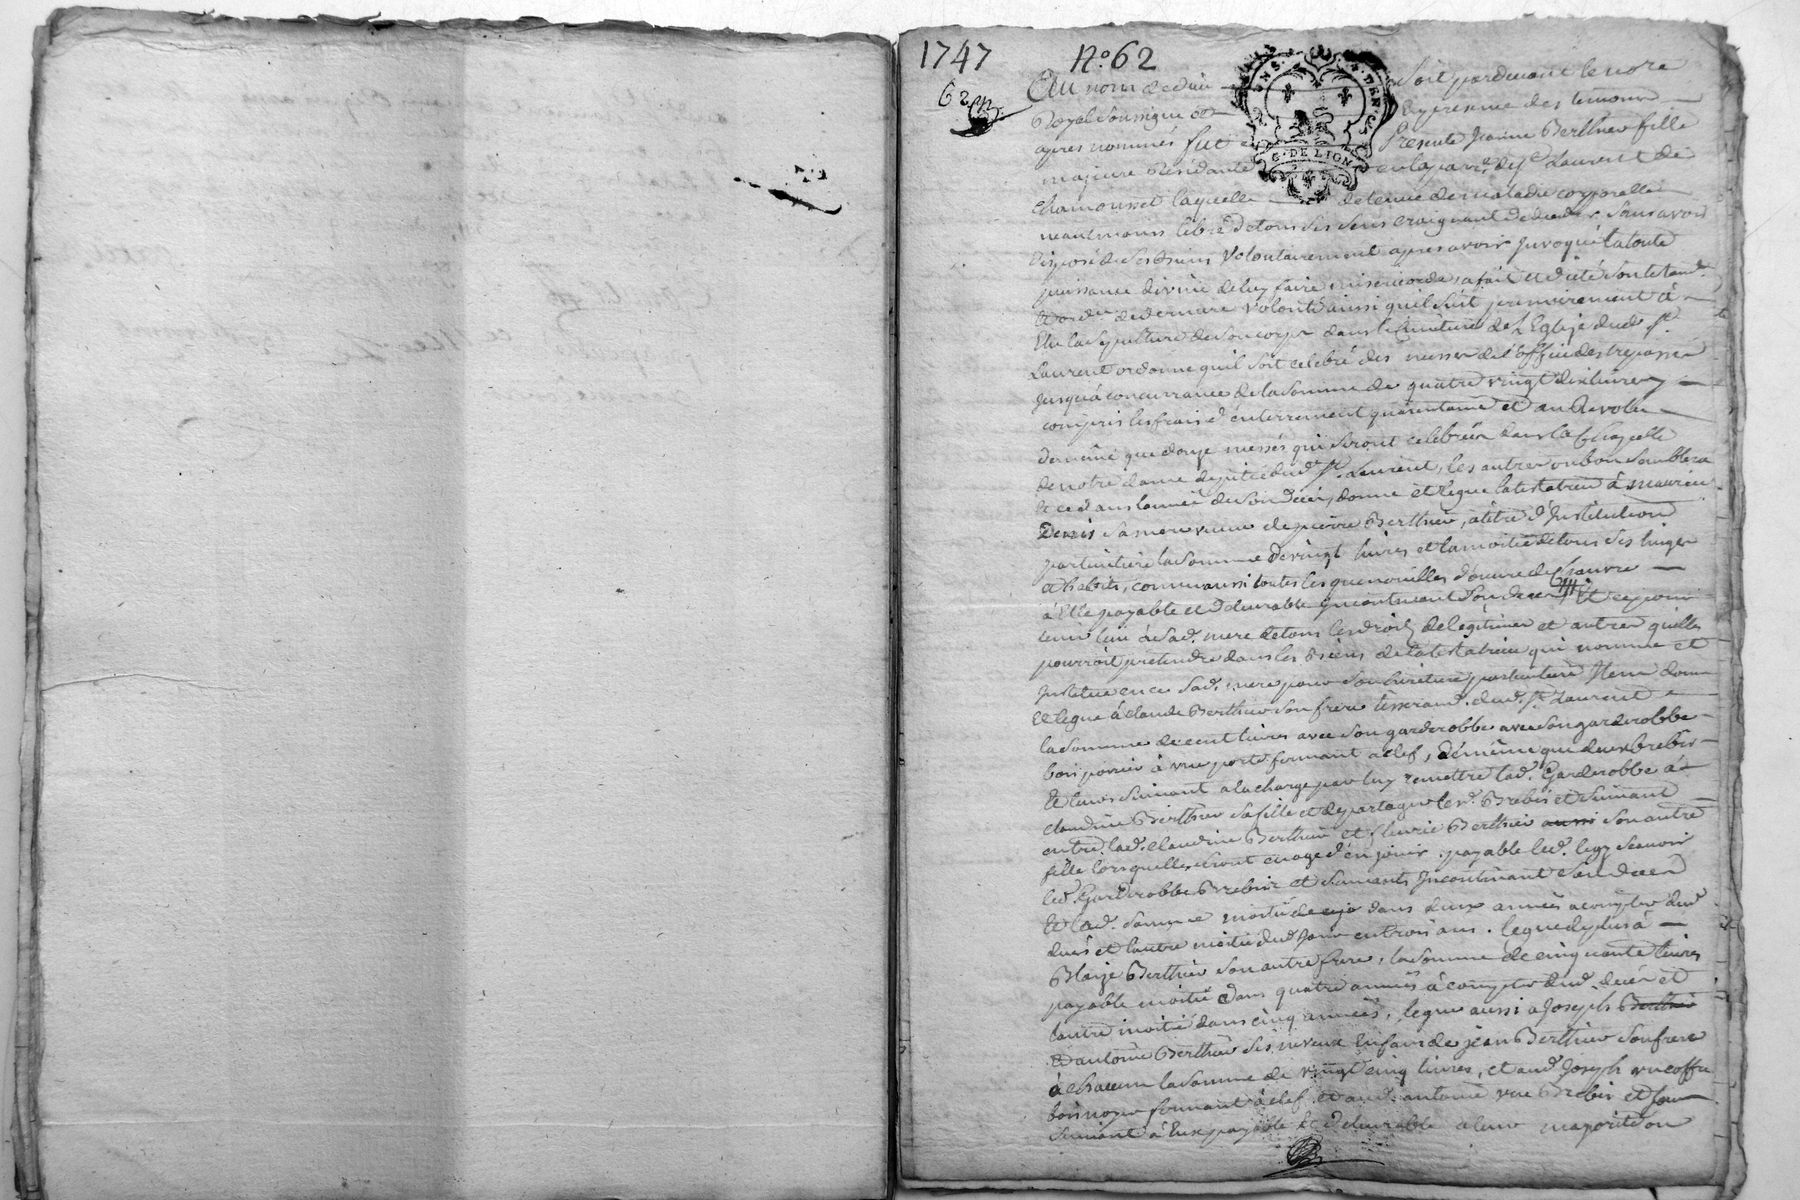 1747 N.º 62
62
GNS. DEN. G. DE LION
Au nom de dieu Soit pardevant le no.re
Royal soussigné et En presence des temoins
apres nommés fut Presente Jeanne Berthier fille
majeure Residante en la par.e de S.t Laurent de
chamousset laquelle detenue de maladie corporelle
neantmoins libre de tous ses sens craignant de deceder sans avoir
disposé de ses biens volontairement apres avoir Invoqué la toute
puissance divine de luy faire misericorde, a fait et dicté son testam.t
et ord.ce de derniere volonté ainsi quil suit premierement à
Elu la sepulture de son corps dans le cimetiere de L'Eglise dud. S.t
Laurent ordonne quil soit celebré des messes de l'office des trepassés
Jusqu'à concurrance de la somme de quatre vingt dix livres y
compris les frais d'enterrement quarantaine et au Revolu
de même que douze messes qui seront celebrées dans la Chapelle
de notre dame de pitié dud. S.t Laurent, les autres ou bon semblera
et ce dans l'année de son décès, donne et legue la testatrice à
Denis sa mere veuve de pierre Berthier, à titre d'Institution
particuliere la somme de vingt livres et la moitié de tous ses linges
et habits, comme aussi toutes les quenouilles d'œuvre de Chanvre
à Elle payable et delivrable Incontinant son deces, Et ce pour
tenir lieu à sad. mere de tous les droits de legitimes et autres quelle
pourroit pretendre dans les Biens de la testatrice qui nomme et
Institue en ce sad. mere pour son heritiere particuliere Item donne
Et legue à claude Berthier son frere tisserand dud. S.t Laurent
la somme de cent livres avec son garderobbe avec son garderobbe
bois poirier à une porte fermant a clef, de même que deux brebis
et leurs suivant a la charge par luy remettre lad. Garderobbe à
claudine Berthier sa fille et de partager lesd. Brebis et suivant
entre lad. claudine Berthier et fleurie Berthier aussi son autre
fille lorsquelles seront en age d'en jouir. payable led. legs scavoir
led. Garderobbe Brebis et suivants Incontinant son deces
et lad. somme moitié dans deux années a compter dud.
deces et l'autre moitié dud. Jour en trois ans. legue de plus à
Blaize Berthier son autre frere, la somme de cinquante livres
payable moitié dans quatre années à compter dud. décès et
l'autre moitié dans cinq années, legue aussi a Joseph Berthier
Et antoine Berthier ses neveux Enfans de jean Berthier son frere
à chacun la somme de vingt cinq livres, et aud. Joseph un coffre
bois noyer fermant à clef et aud. antoine une Brebis et son
suivant à Eux payable et delivrable a leur majorité ou